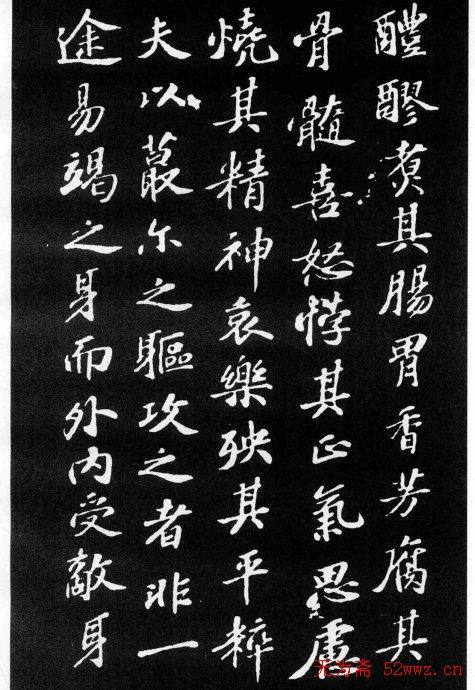 醴醪煮其腸胃香芳腐其
骨髓喜怒悖其正氣思慮
燒其精神哀樂殃其平粹
夫以蕞尓之驅攻之者非一
途易竭之身而外内受敵身
无为斋 52wwz.cn